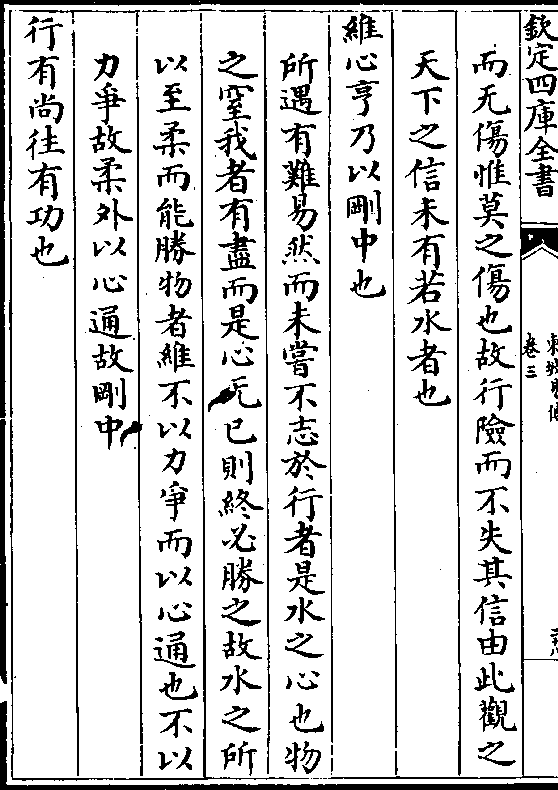 欽定四庫全書
卷三
而无傷惟莫之傷也故行險而不失其信由此觀之
天下之信未有若水者也
維心亨乃以剛中也
所遇有難易然而未嘗不志於行者是水之心也物
之窒我者有盡而是心无已則終必勝之故水之所
以至柔而能勝物者維不以力爭而以心通也不以
力爭故柔外以心通故剛中
行有尚往有功也